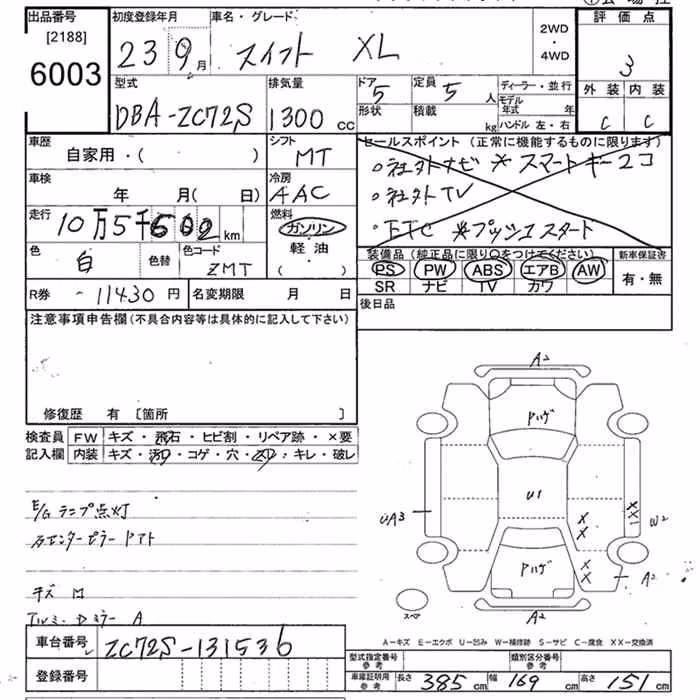 出品番号 初度登録年月 車名・グレード 評価点
[2188]
6003 23 9月 スイフト XL 2WD ・ 4WD 3
型式 排気量 ドア 5 定員 5人 ディーラー・並行 外装 内装
DBA-ZC72S 1300cc 形状 積載 kg モデル年式 年 C C
ハンドル 左・右
車歴 シフト セールスポイント (正常に機能するものに限ります)
自家用・( ) MT ○社外ナビ ※スマートキー2コ
車検 冷房 ○社外TV
年 月( 日) AAC
走行 燃料 ・ETC ※プッシュスタート
10万5千602km ガソリン
色 色替 色コード 軽油 装備品 (純正品に限り○をつけてください) 新車保証書
白 ZMT ・( ) PS PW ABS エアB AW 有・無
SR ナビ TV カワ
R券 -11430円 名変期限 月 日 後日品
注意事項申告欄 (不具合内容等は具体的に記入して下さい)
修復歴 有 [箇所 ]
検査員 FW キズ・飛石・ヒビ割・リペア跡・×要
記入欄 内装 キズ・汚れ・コゲ・穴・スリ・キレ・破レ
A2
ハゲ
E/Gランプ点灯
U1
UA3
XX1
W2
X
X
センターピラー
ハゲ
X
X
A2
キズ
A2
スペア
アルミ・Dミラー A
A-キズ E-エクボ U-凹み W-補修跡 S-サビ C-腐食 XX-交換済
車台番号 ZC72S-131536
型式指定番号 参考 類別区分番号 参考
登録番号 車庫証明用 参考 長さ 385cm 幅 169cm 高さ 151cm